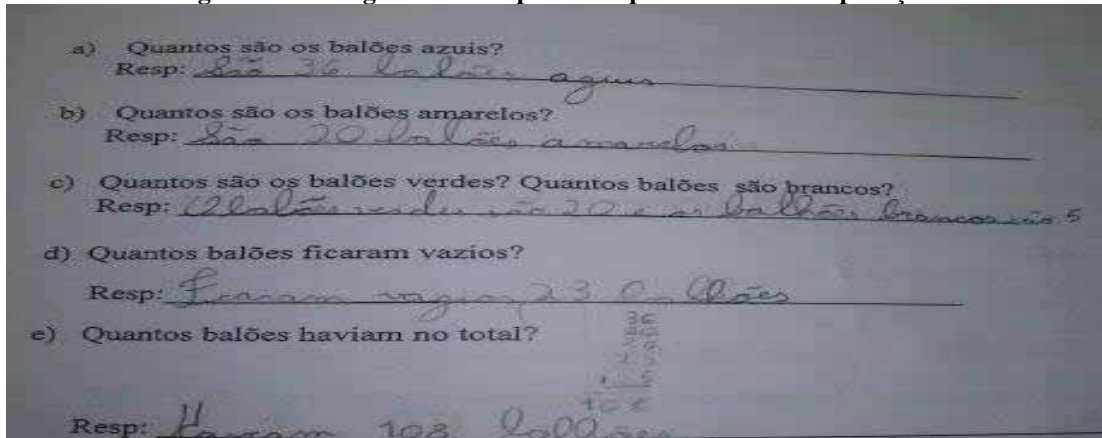 a) Quantos são os balões azuis?
Resp: São 36 balões aguis
b) Quantos são os balões amarelos?
Resp: São 20 balões amarelos
c) Quantos são os balões verdes? Quantos balões são brancos?
Resp: balões verdes são 20 e os ballões brancos são 5
d) Quantos balões ficaram vazios?
Resp: Ficaram vazios 23
e) Quantos balões haviam no total?
36
Resp: Haviam 108